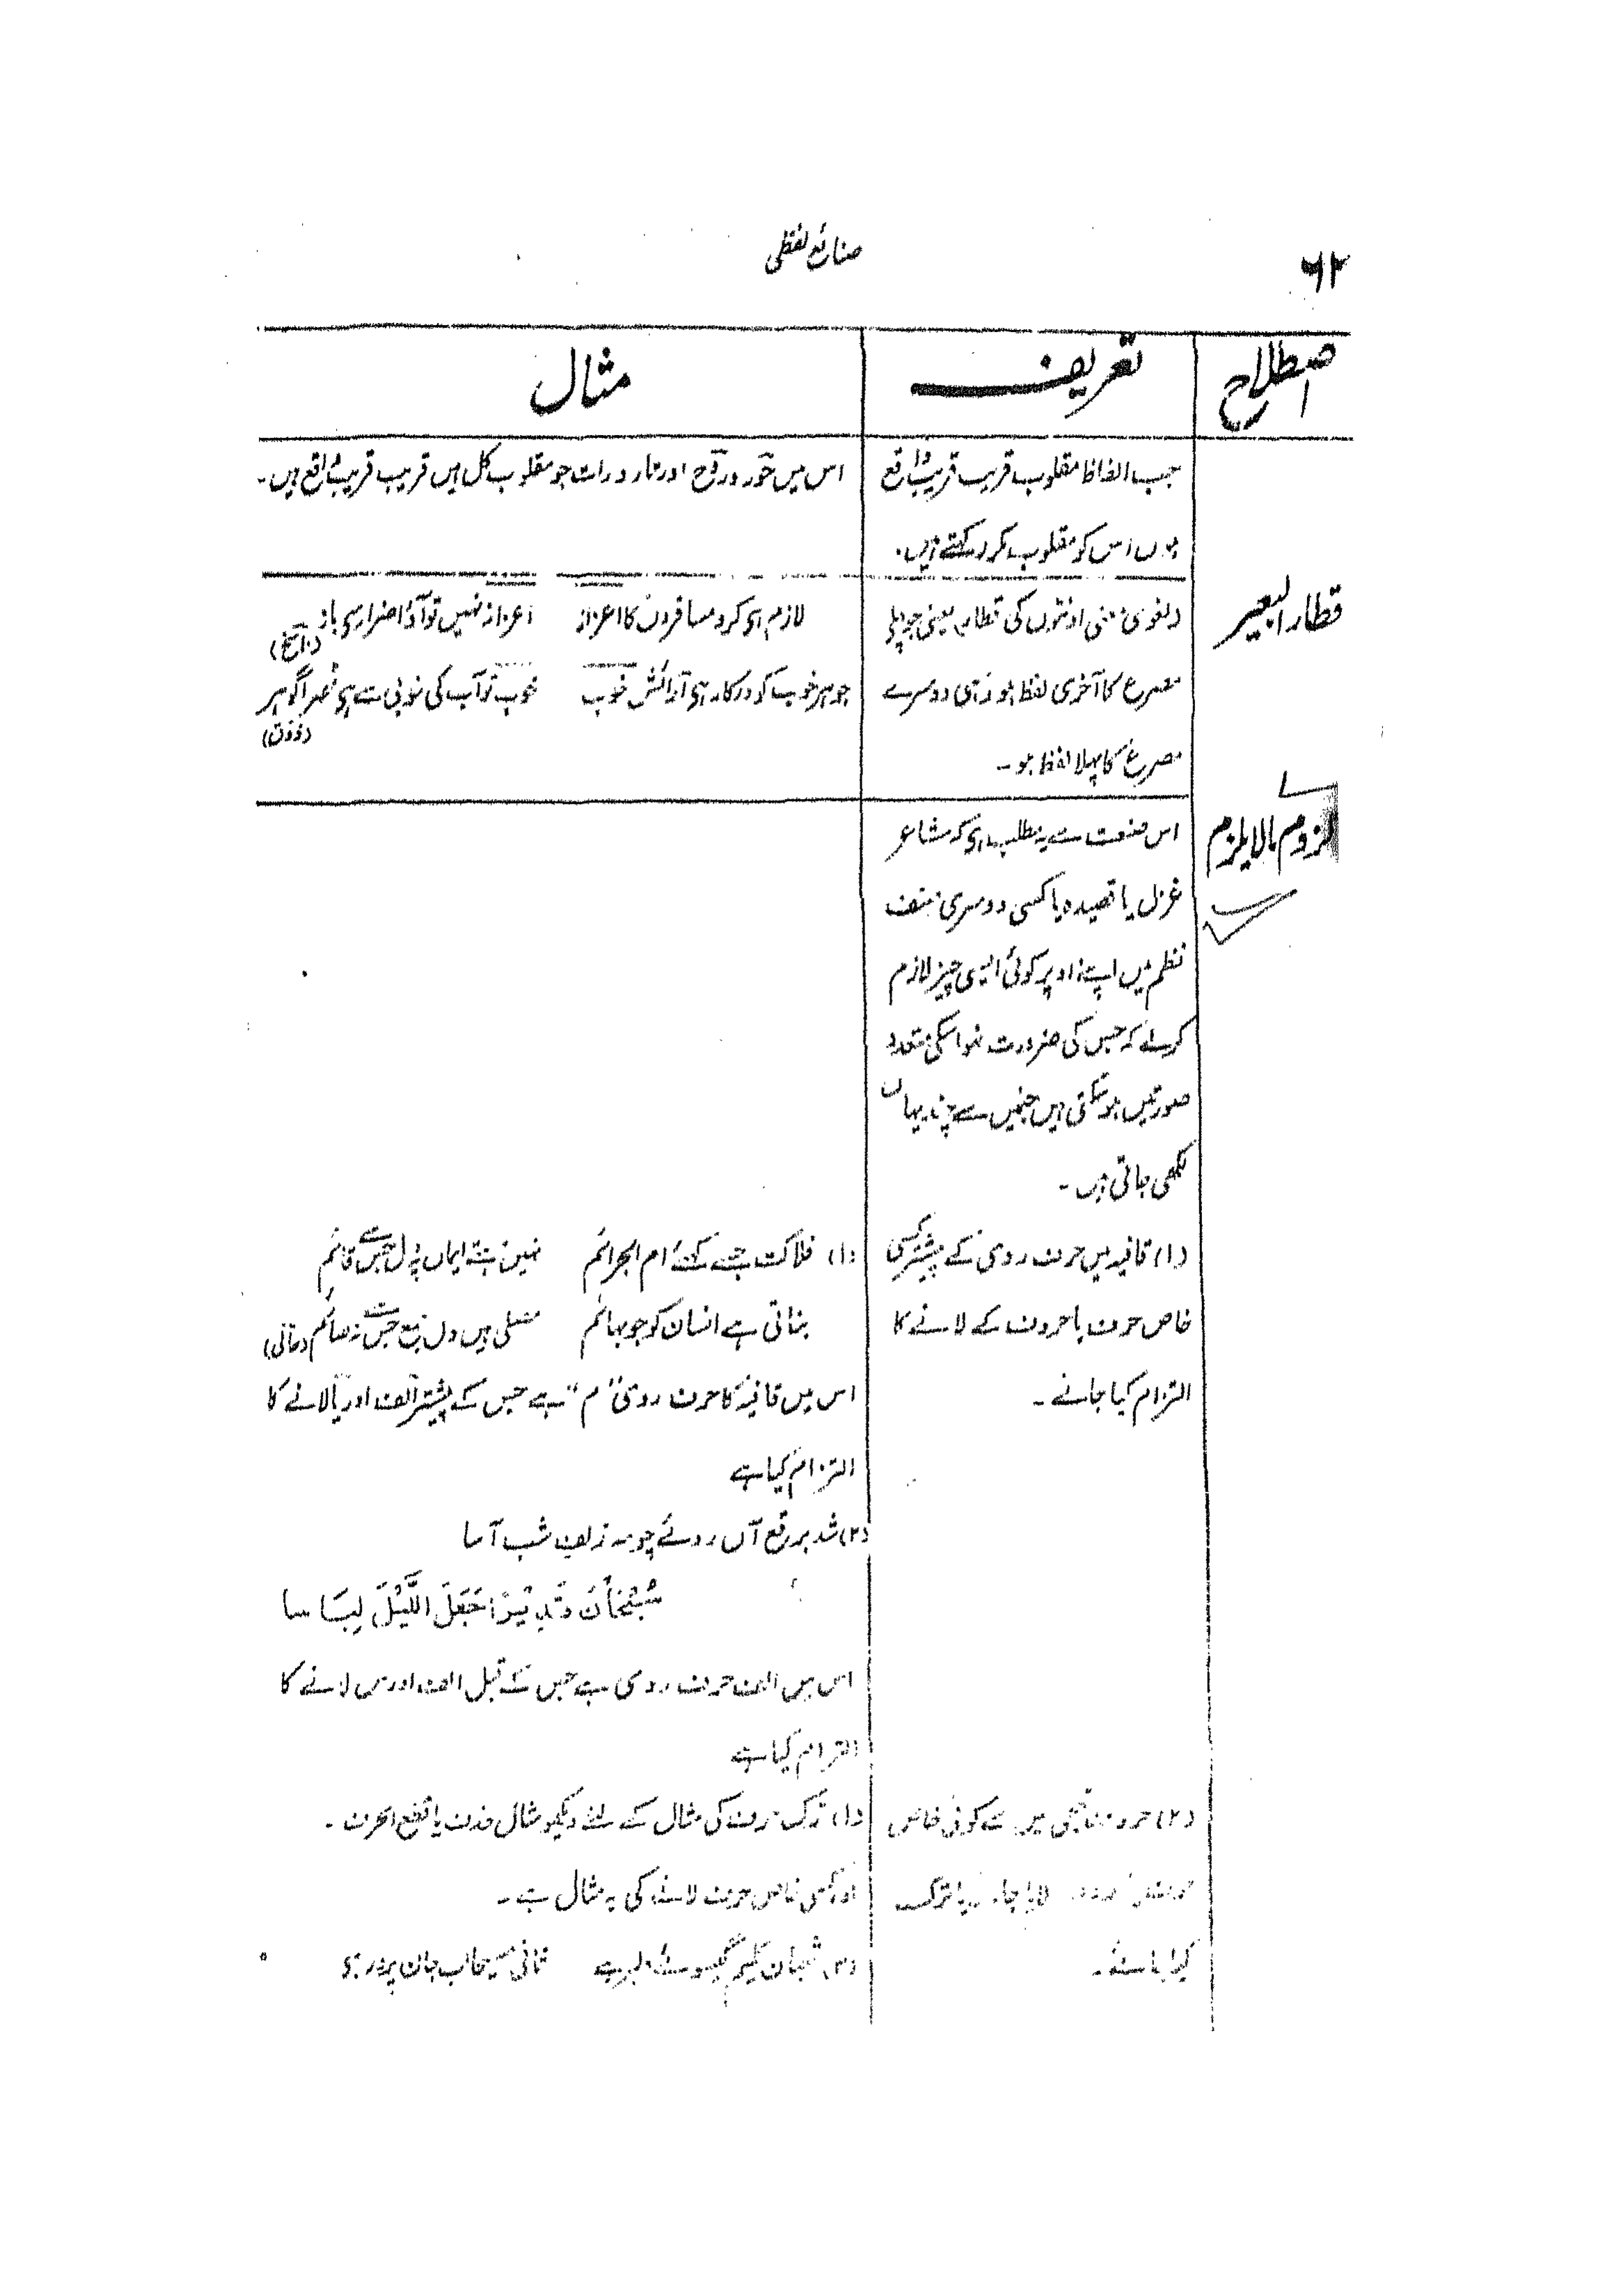 ۶۲
صنائع لفظی
اصطلاح
تعریف
مثال
جب الفاظ مقلوب قریب قریب واقع
ہوں اس کو مقلوب مکرر کہتے ہیں۔
اس میں حور و روح اور تار و رات جو مقلوب کل ہیں قریب قریب واقع ہیں۔
قطار البعیر
(لغوی معنی اونٹوں کی قطار) یعنی جو پہلے
مصرع کا آخری لفظ ہو وہی دوسرے
مصرع کا پہلا لفظ ہو۔
لازم ہی کرو مسافروں کا اعزاز اعزاز نہیں تو آؤ اضرار ہی باز
جوہر خوب کو درکار ہی آرائش خوب خوب تو آب کی خوبی سے ہی ٹھہرا گوہر
(ذوق)
لزوم مالایلزم
اس صنعت سے یہ مطلب ہی کہ شاعر
غزل یا قصیدہ یا کسی دوسری صنف
نظم میں اپنے اوپر کوئی ایسی چیز لازم
کرلے کہ جس کی ضرورت نہو اسکی متعدد
صورتیں ہوسکتی ہیں جنمیں سے چند یہاں
لکھی جاتی ہیں۔
(۱) قافیہ میں حرف روی کے پیشتر کسی
خاص حرف یا حروف کے لانے کا
التزام کیا جائے۔
(۱) فلاکت جسے کہئے ام الجرائم نہیں رہتے ایماں پہ دل جس سے قائم
بناتی ہے انسان کو جو بہائم مصلی ہیں دل جمع جس سے نہ صائم (حالی)
اس میں قافیہ کا حرف روی "م" ہے جس کے پیشتر الف اور یا لانے کا
التزام کیا ہے
(۲) شد برقع آں روئے چو مہ زلف شب آسا
سُبْحَانَ قَدِیْرًا جَعَلَ اللَّیْلَ لِبَاسا
اس میں الف حرف روی ہے جس کے قبل الف اور س لانے کا
التزام کیا ہے
(۲) حروف تہجی میں سے کوئی خاص
لایا جائے یا ترک
کیا جائے۔
(۱) ترک حرف کی مثال کے لئے دیکھو مثال حذف یا قطع الحرف۔
اور کسی خاص حرف لانے کی یہ مثال ہے۔